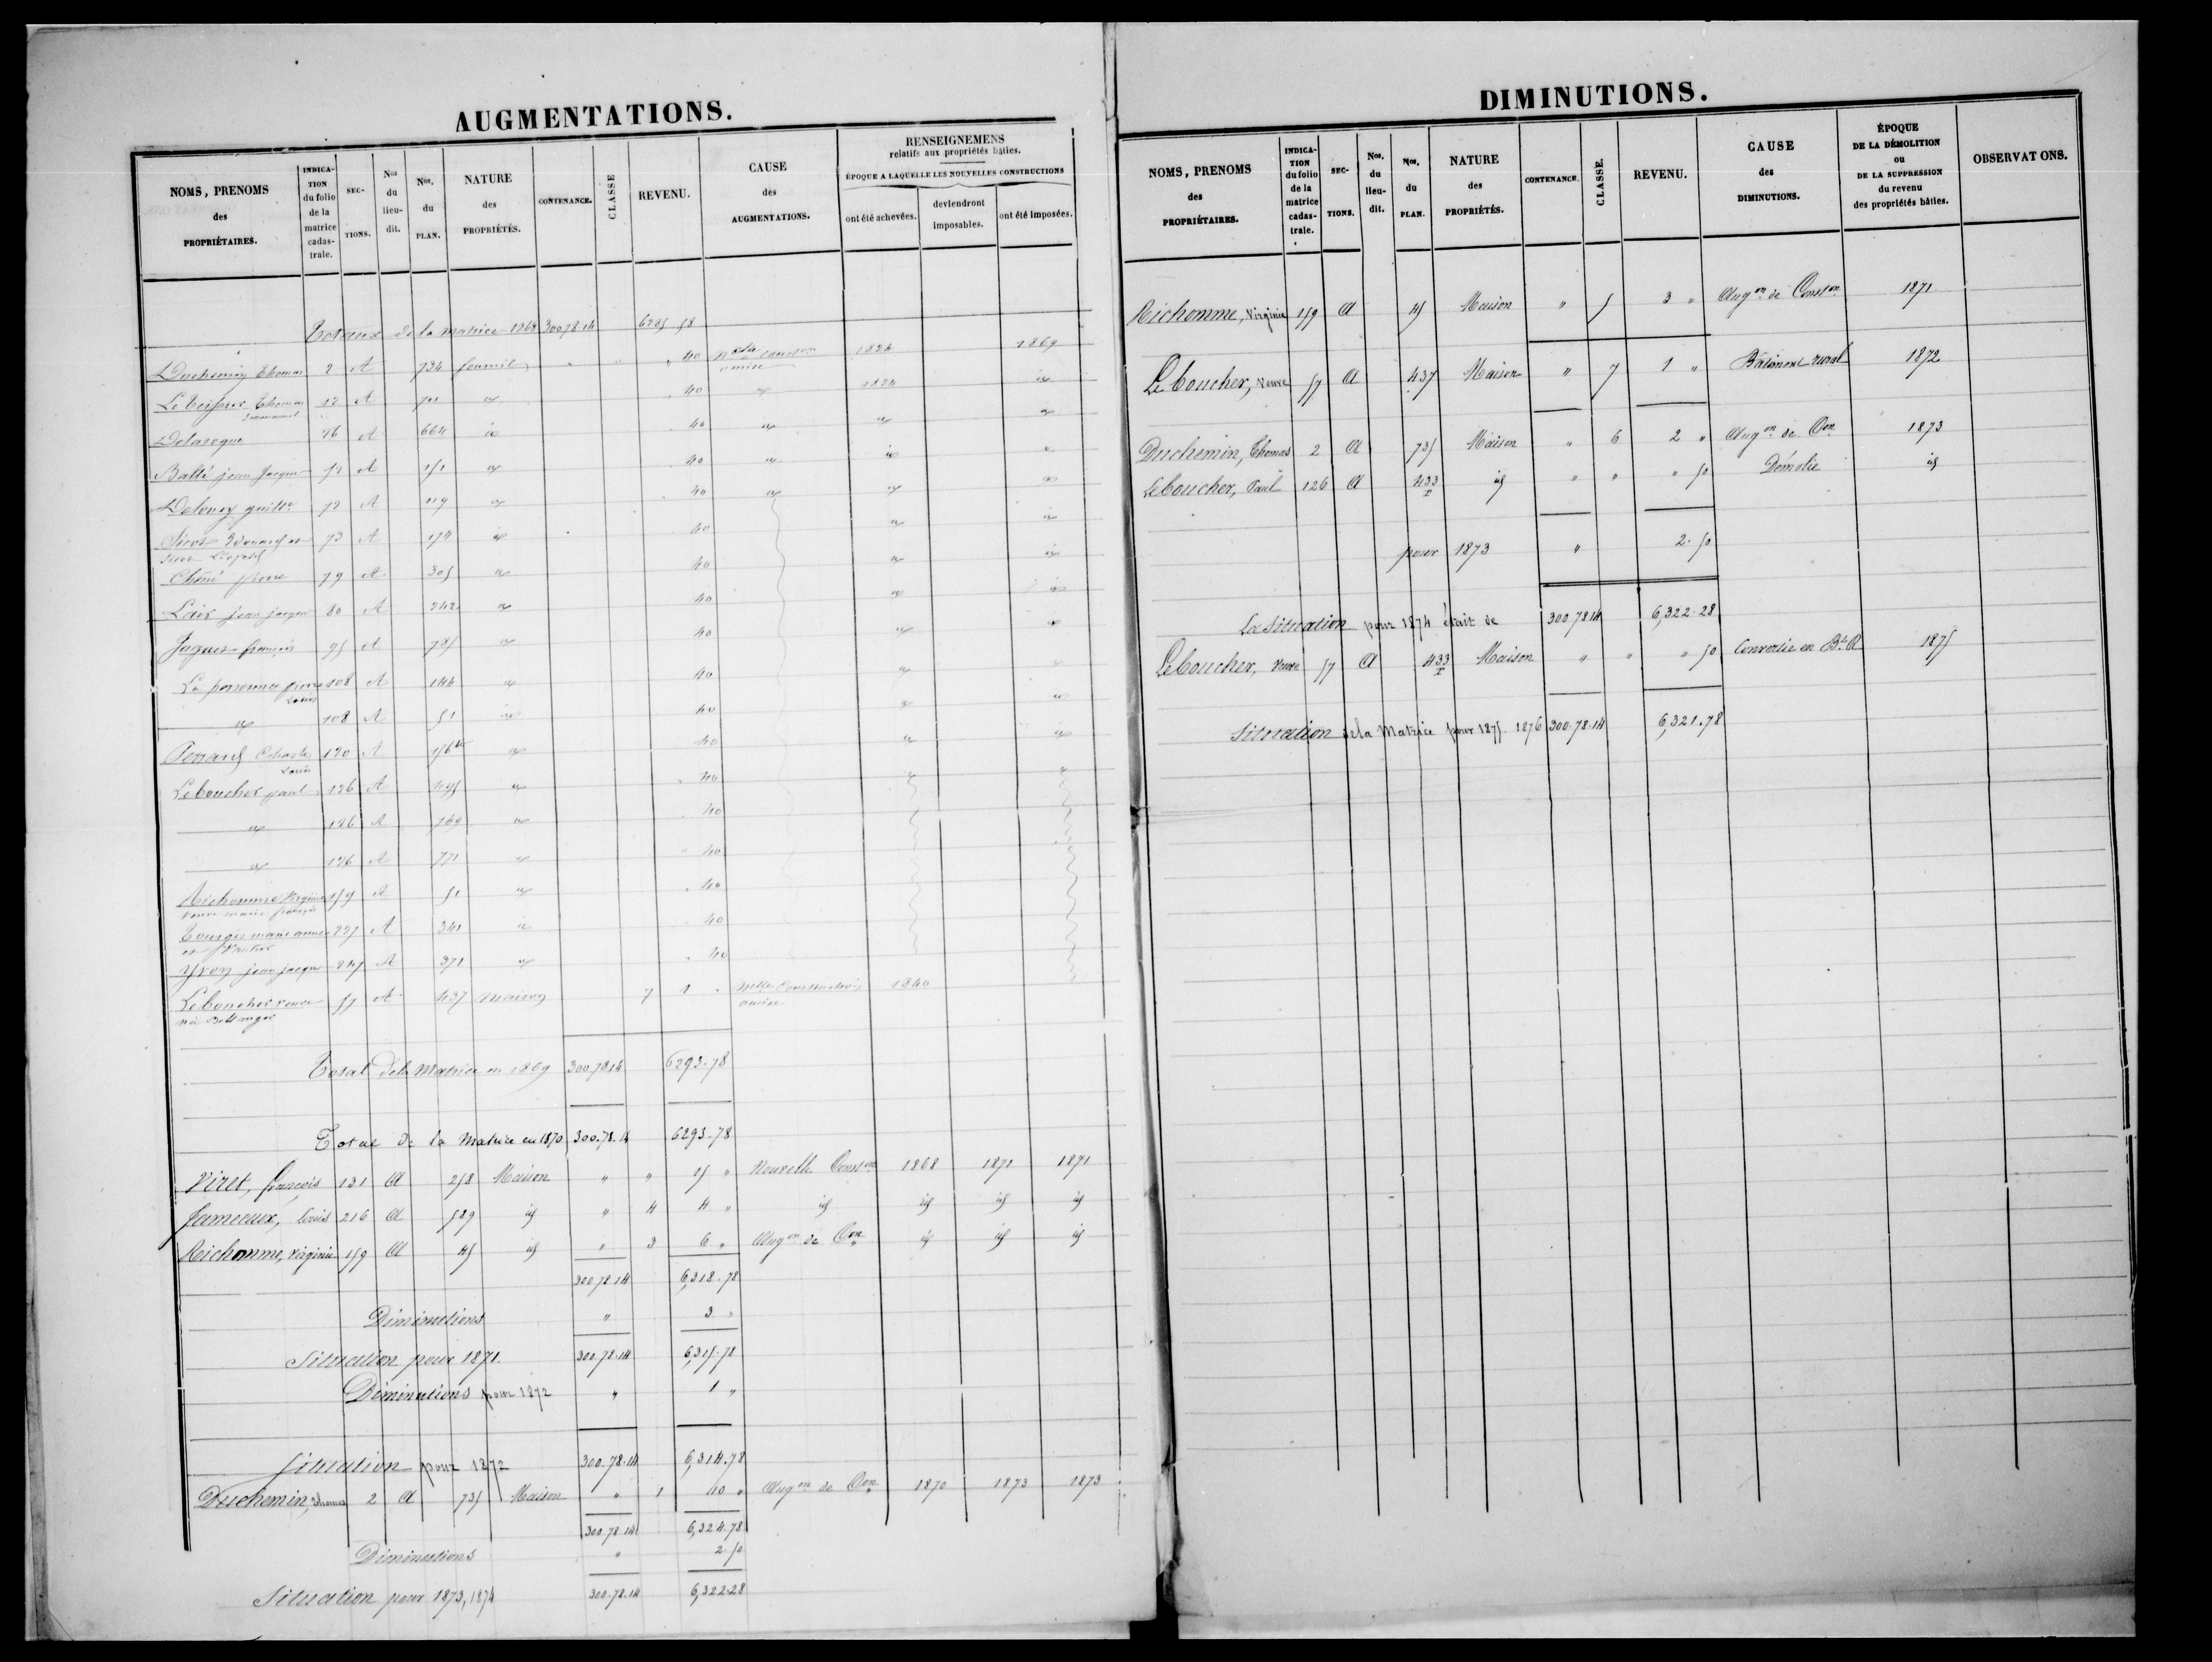 AUGMENTATIONS.
NOMS, PRENOMS des PROPRIÉTAIRES.
INDICATION du folio de la matrice cadastrale.
SECTIONS.
Nos du lieu-dit.
Nos. du PLAN.
NATURE des PROPRIÉTÉS.
CONTENANCE.
CLASSE
REVENU.
CAUSE des AUGMENTATIONS.
RENSEIGNEMENS relatifs aux propriétés bâties.
ÉPOQUE A LAQUELLE LES NOUVELLES CONSTRUCTIONS
ont été achevées.
deviendront imposables.
ont été imposées.
Totaux de la matrice 1868 300.78.14 6285 58
Duchemin Thomas 2 A 734 fournil " " " 40 Nelle constron omise 1824 1869
12 A 40 id 1824 id
Delarogue 26 A 664 id 40 id id id
jean jacques A 151 id 40 id id id
Delonoy A id 40 id id id
73 A 174 id 40 id id
79 A 305 id 40 id id
Lair jean jacques 80 A 242 id 40 id id
Jaques françois 95 A 785 id 40 id id
Louis 108 A 144 id 40 id
id 108 A 51 id 40 id
Charles Louis 120 A 156 bis id 40 id id
Leboucher paul 126 A id 40 id id
id 126 A 769 id 40
id 126 A 771 id 40
Richomme Virginie 159 A 51 id 40
veuve marie françois
marie anne 227 A 341 id 40
Yvon jean jacques 247 A 371 id 40
Leboucher veuve 57 A 437 maison 7 1 " Nelle Construction omise 1840
née Bellanger
Total de la Matrice en 1869 300.78.14 6293.78
Total de la Matrice en 1870 300.78.14 6293.78
Viret, françois 131 A 258 Maison " " 15 " Nouvelle Conston 1868 1871 1871
Jameaux, Louis 216 A 529 id " 4 4 " id id id id
Richomme, Virginie 159 A 45 id " 3 6 " Augon de Con id id id
300.78.14 6,318.78
Diminutions " 3 "
Situation pour 1871. 300.78.14 6,315.78
Diminutions pour 1872 " 1 "
Situation pour 1872 300.78.14 6,314.78
Duchemin, Thomas 2 A 735 Maison " 1 10 " Augon de Con 1870 1873 1873
300.78.14 6,324.78
Diminutions " 2 50
Situation pour 1873, 1874 300.78.14 6,322.28
DIMINUTIONS.
NOMS, PRENOMS des PROPRIÉTAIRES.
INDICATION du folio de la matrice cadastrale.
SECTIONS.
Nos. du lieu-dit.
Nos. du PLAN.
NATURE des PROPRIÉTÉS.
CONTENANCE.
CLASSE.
REVENU.
CAUSE des DIMINUTIONS.
ÉPOQUE DE LA DÉMOLITION ou DE LA SUPPRESSION du revenu des propriétés bâties.
OBSERVAT ONS.
Richomme, Virginie 159 A 45 Maison " 5 3 " Augon de Conston 1871
Leboucher, Veuve 57 A 437 Maison " 7 1 " Bâtiment rural 1872
Duchemin, Thomas 2 A 735 Maison " 6 2 " Augon de Con 1873
Leboucher, Paul 126 A 433 P id " " " 50 Démolie id
pour 1873 " 2.50
La situation pour 1874 était de 300.78.14 6,322.28
Leboucher, Veuve 57 A 433 P Maison " " " 50 Convertie en Bt R 1875
Situation de la Matrice pour 1875. 1876 300.78.14 6,321.78